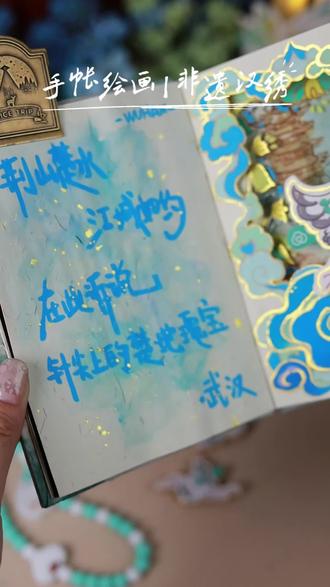 手帐绘画|非遗汉绣
荆山楚水
江城如约
在此看说
针尖上的楚地瑰宝
武汉